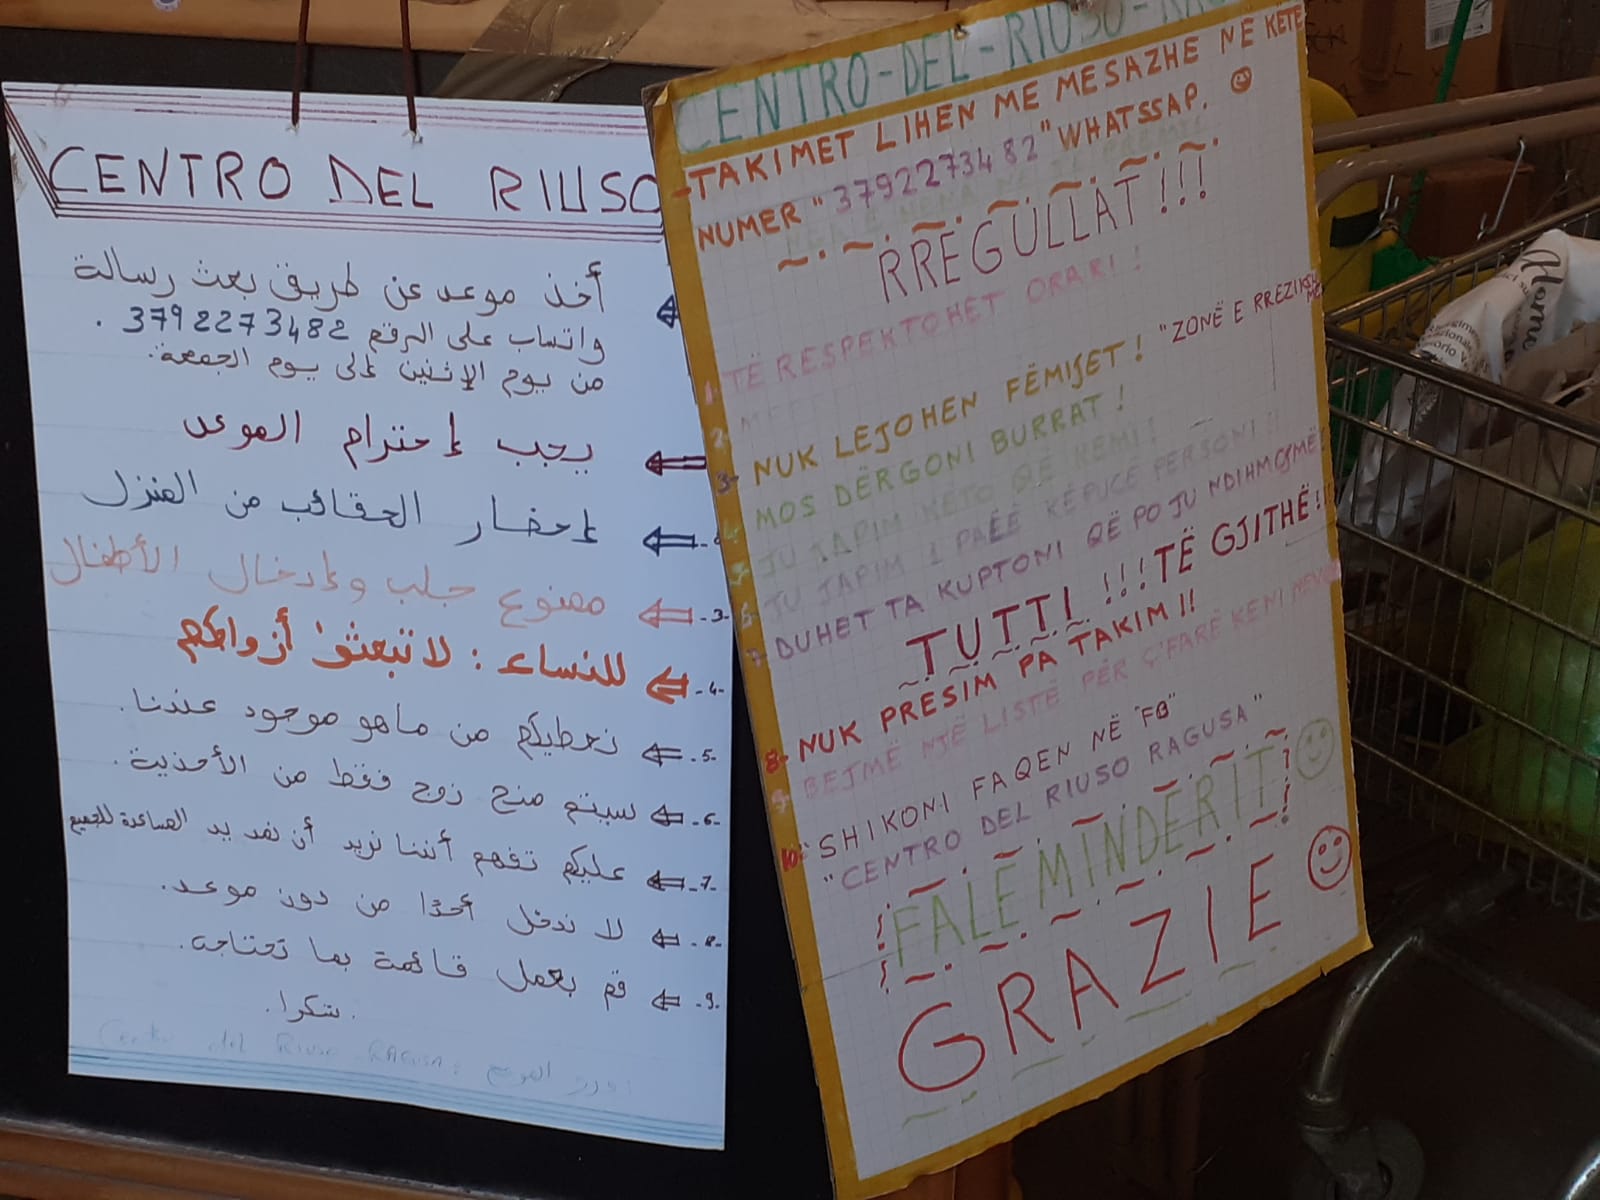 CENTRO DEL RIUSO
أخذ موعد عن طريق بعث رسالة
واتساب على الرقم 3792273482 .
من يوم الإثنين إلى يوم الجمعة.
يجب إحترام الموعد
إحضار الحقائب من المنزل
3- ممنوع جلب وإدخال الأطفال
-4- للنساء : لا تبعثوا أزواجكم
-5- نعطيكم من ما هو موجود عندنا.
-6- سيتم منح زوج فقط من الأحذية.
-7- عليكم تفهم أننا نريد أن نمد يد المساعدة للجميع
-8- لا ندخل أحدًا من دون موعد.
-9- قم بعمل قائمة بما تحتاجه.
شكرا.
Centro del Riuso RAGUSA :
CENTRO-DEL-RIUSO-
-TAKIMET LIHEN ME MESAZHE NË KËTË
NUMER "3792273482" WHATSSAP.
RREGULLAT!!!
1- TË RESPEKTOHET ORARI!
2-
3- NUK LEJOHEN FËMIJET! "ZONË E
4- MOS DËRGONI BURRAT!
JU JAPIM KËTO QË KEMI!
6- JU JAPIM 1 PAËË KËPUCË PERSONI!!
7- DUHET TA KUPTONI QË PO JU NDIHMOJMË
TUTTI!!! TË GJITHË!!
8- NUK PRESIM PA TAKIM!!
9- BEJMË NJË LISTË PËR Ç'FARË KENI
10- SHIKONI FAQEN NË "FB"
"CENTRO DEL RIUSO RAGUSA"
!FALEMINDERIT!
GRAZIE